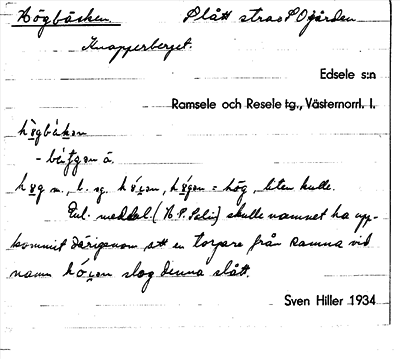 Högbäcken. Slått strax S O gården
Knapperberget.
Edsele s:n
Ramsele och Resele tg., Västernorrl. l.
högbäken
- bäjgen ä.
hög m., b. sg. högen, högen = hög, liten kulle.
Enl. meddel. (N. P. Selin) skulle namnet ha upp-
kommit därigenom att en torpare från Ramna vid
namn slog denna slått.
Sven Hiller 1934